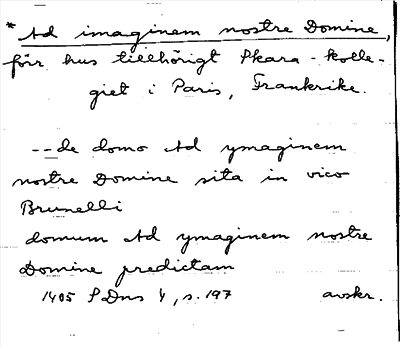 * Ad imaginem nostre Domine,
förr hus tillhörigt Skara-kolle-
giet i Paris, Frankrike.
--de domo Ad ymaginem
nostre Domine sita in vico
Brunelli
domum Ad ymaginem nostre
Domine predictam
1405 SDns 1, s. 197 avskr.